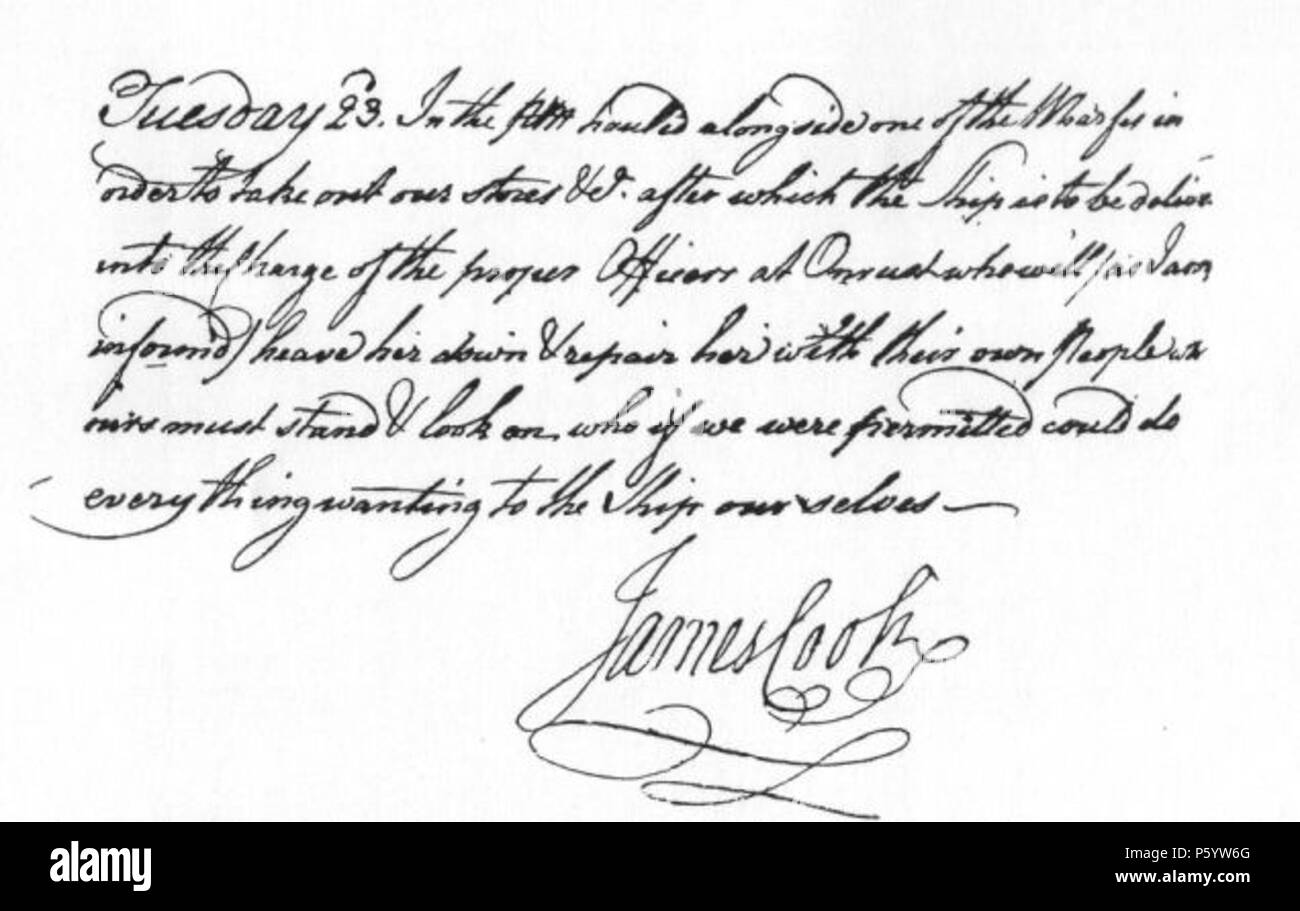 Tuesday 23. In the PM hauld alongside one of the Wharfes in
order to take out our stores &c. after which the Ship is to be deliver
into the Charge of the proper Officers at Onrust who will (as I am
inform'd) heave her down & repair her with their own People
ours must stand & look on, who if we were permitted could do
every thing wanting to the Ship our selves —
James Cook
alamy
Image ID: P5YW6G
www.alamy.com